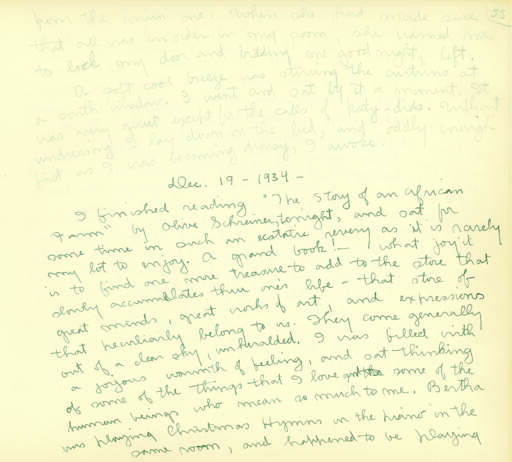 55
from the main one. When she had made sure
that all was in order in my room, she warned me
to lock my door and bidding me good night, left.
A soft cool breeze was stirring the curtains at
a south window. I went and sat by it a moment. It
was very quiet except for the calls of katy-dids. Without
undressing I lay down on the bed, and oddly enough
just as I was becoming drowsy, I awoke.
Dec. 19 - 1934 -
I finished reading "The Story of an African
Farm" by Olive Schreiner, tonight, and sat for
some time in such an ecstatic revery as it is rarely
my lot to enjoy. A grand book! - what joy it
is to find one more treasure to add to the store that
slowly accumulates thru one's life - that store of
great minds, great works of art, and expressions
that peculiarly belong to us. They come generally
out of a clear sky, unheralded. I was filled with
a joyous warmth of feeling, and sat thinking
of some of the things that I love and some of the
human beings who mean so much to me. Bertha
was playing Christmas Hymns on the piano in the
same room, and happened to be playing